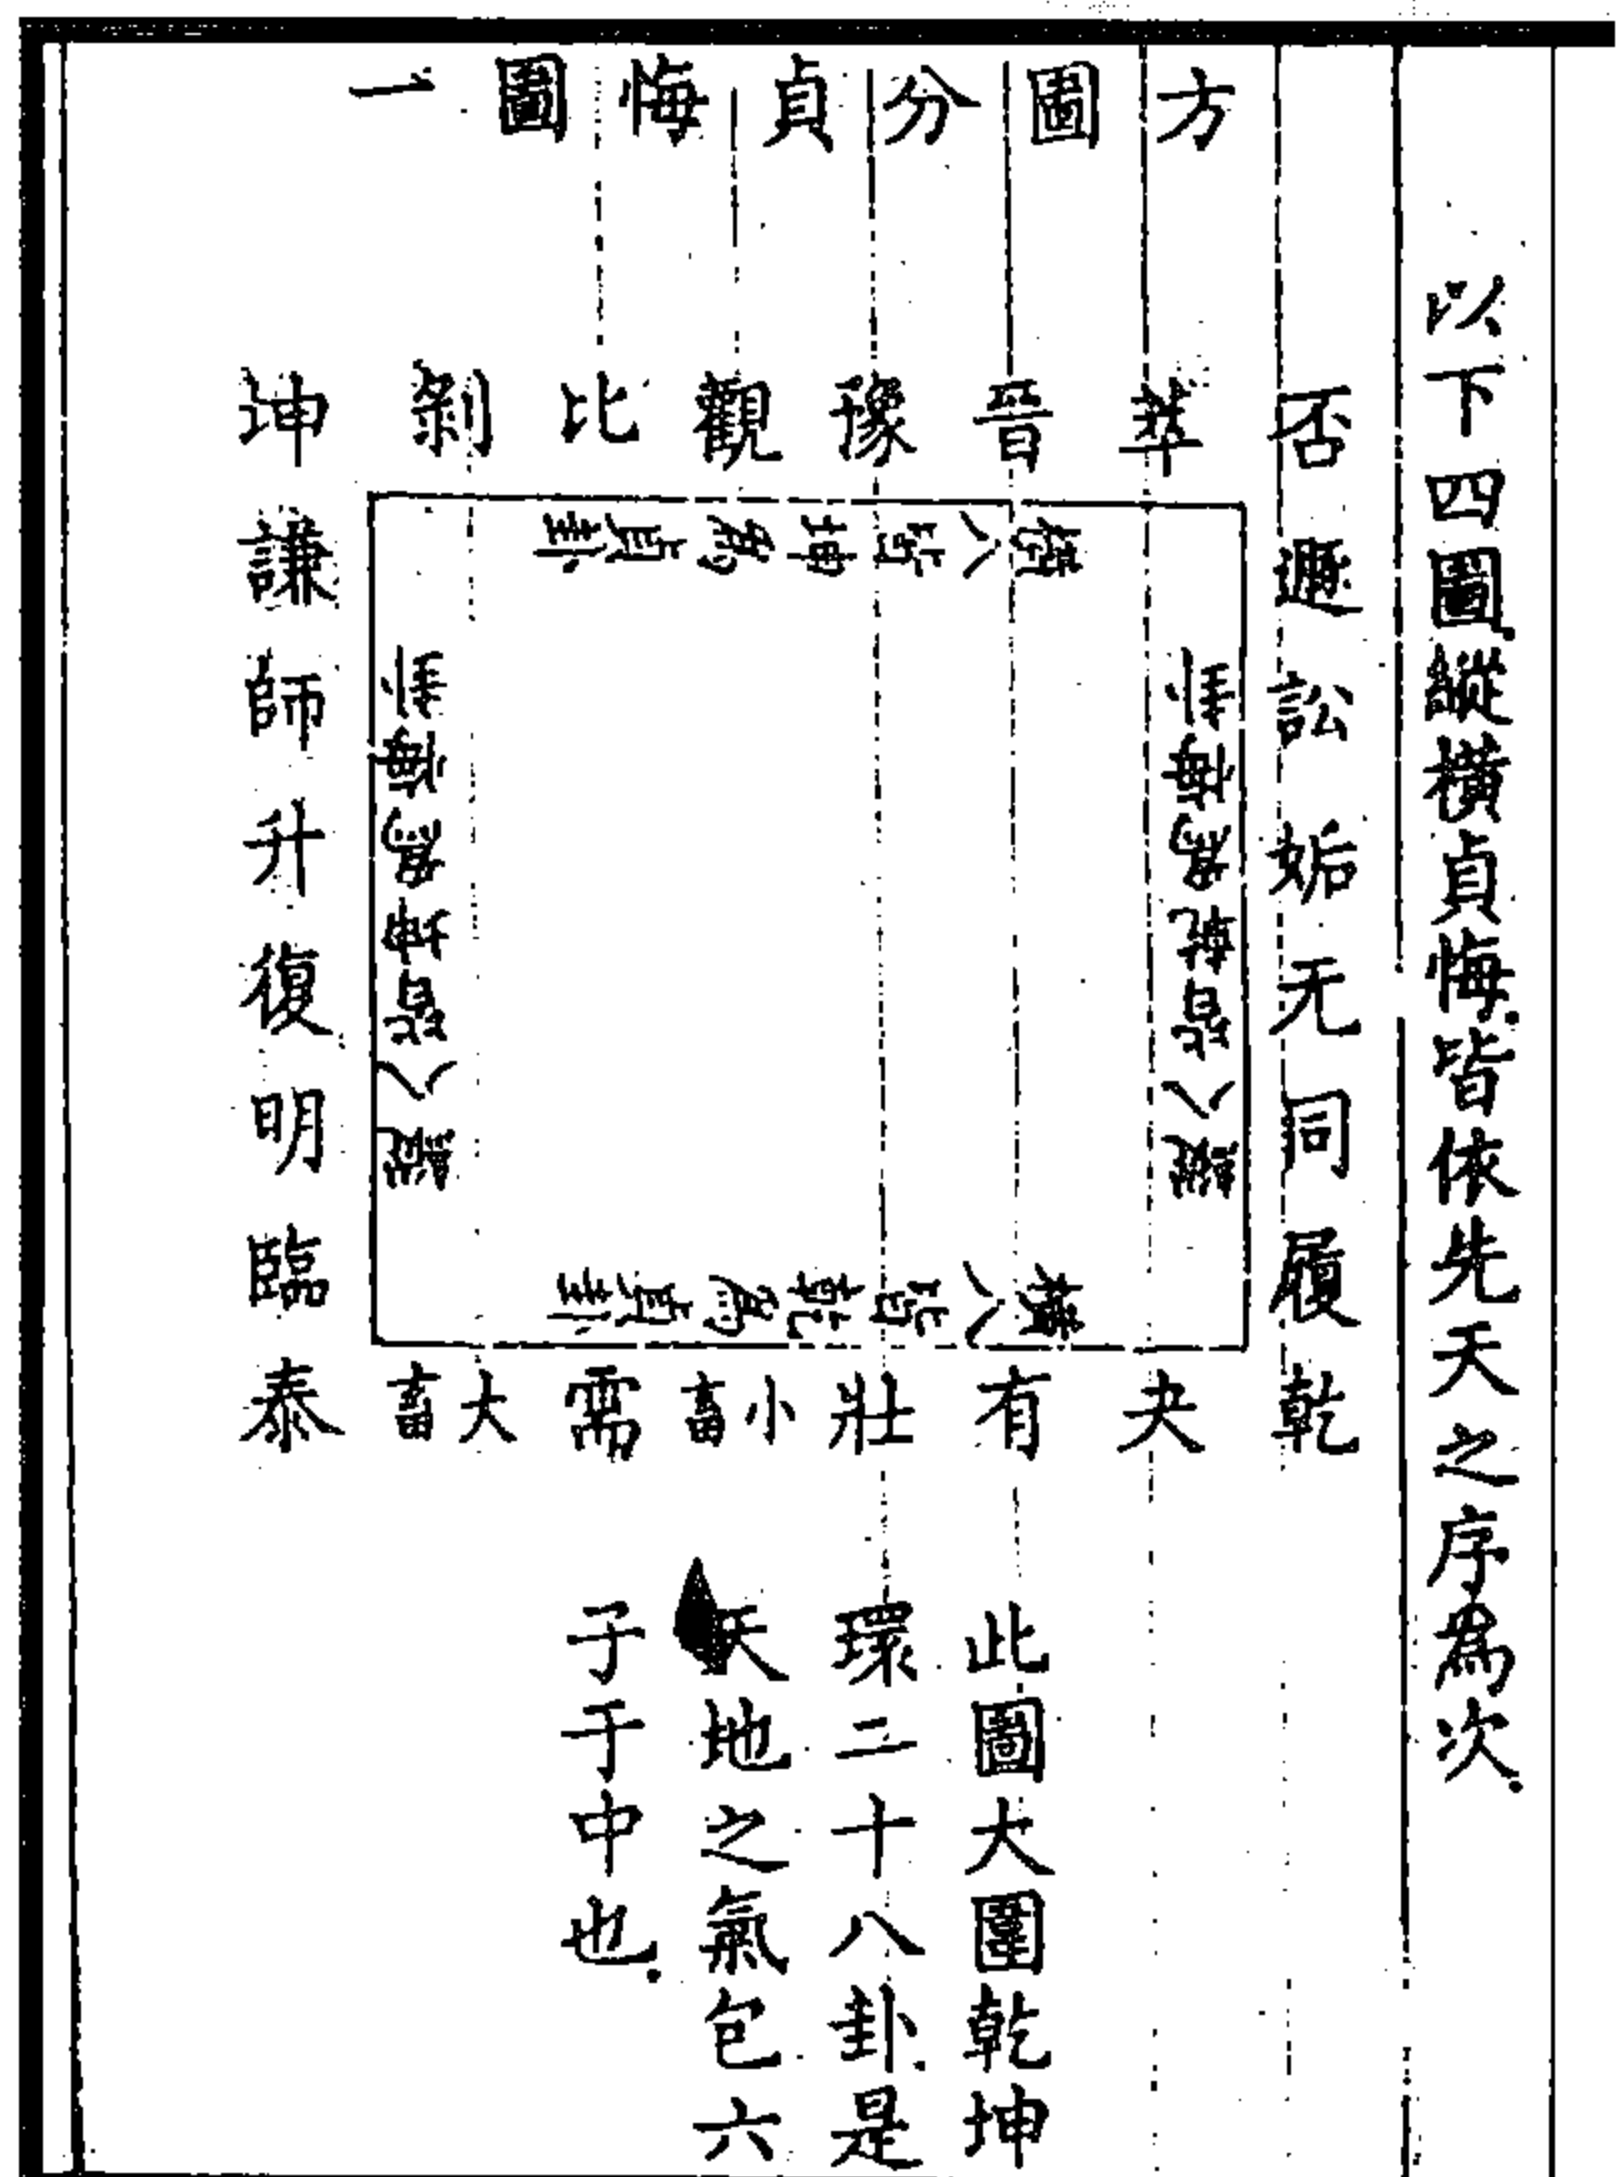 以下四圖縱橫貞悔皆依先天之序為次
方圖分貞悔圖一
否萃晉豫觀比剝坤
遯訟姤无同履
謙師升復明臨
乾夬有壯小畜需大畜泰
橫八皆坤為貞卦
縱八皆乾為悔卦
縱八皆坤為悔卦
橫八皆乾為貞卦
此圖大圍乾坤
環二十八卦是
天地之氣包六
子于中也